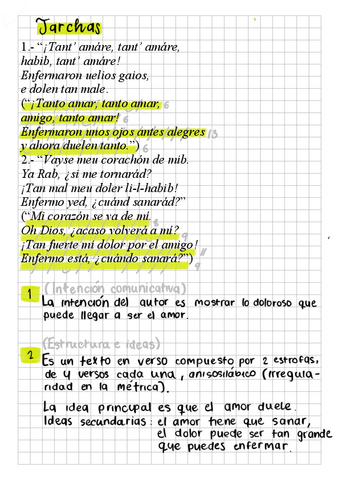 Jarchas
1.- “¡Tant’ amáre, tant’ amáre,
habib, tant’ amáre!
Enfermaron uelios gaios,
e dolen tan male.
(“¡Tanto amar, tanto amar, 6
amigo, tanto amar! 6
Enfermaron unos ojos antes alegres 13
y ahora duelen tanto.”) 6
2.- “Vayse meu corachón de mib.
Ya Rab, ¿si me tornarád?
¡Tan mal meu doler li-l-habib!
Enfermo yed, ¿cuánd sanarád?”
(“Mi corazón se va de mí.
Oh Dios, ¿acaso volverá a mí? 9
¡Tan fuerte mi dolor por el amigo!
Enfermo está, ¿cuándo sanará?”) 9
1 (Intención comunicativa)
La intención del autor es mostrar lo doloroso que
puede llegar a ser el amor.
(Estructura e ideas)
2 Es un texto en verso compuesto por 2 estrofas,
de 4 versos cada una, anisosilábico (irregula-
ridad en la métrica).
La idea principal es que el amor duele.
Ideas secundarias: el amor tiene que sanar,
el dolor puede ser tan grande
que puedes enfermar.